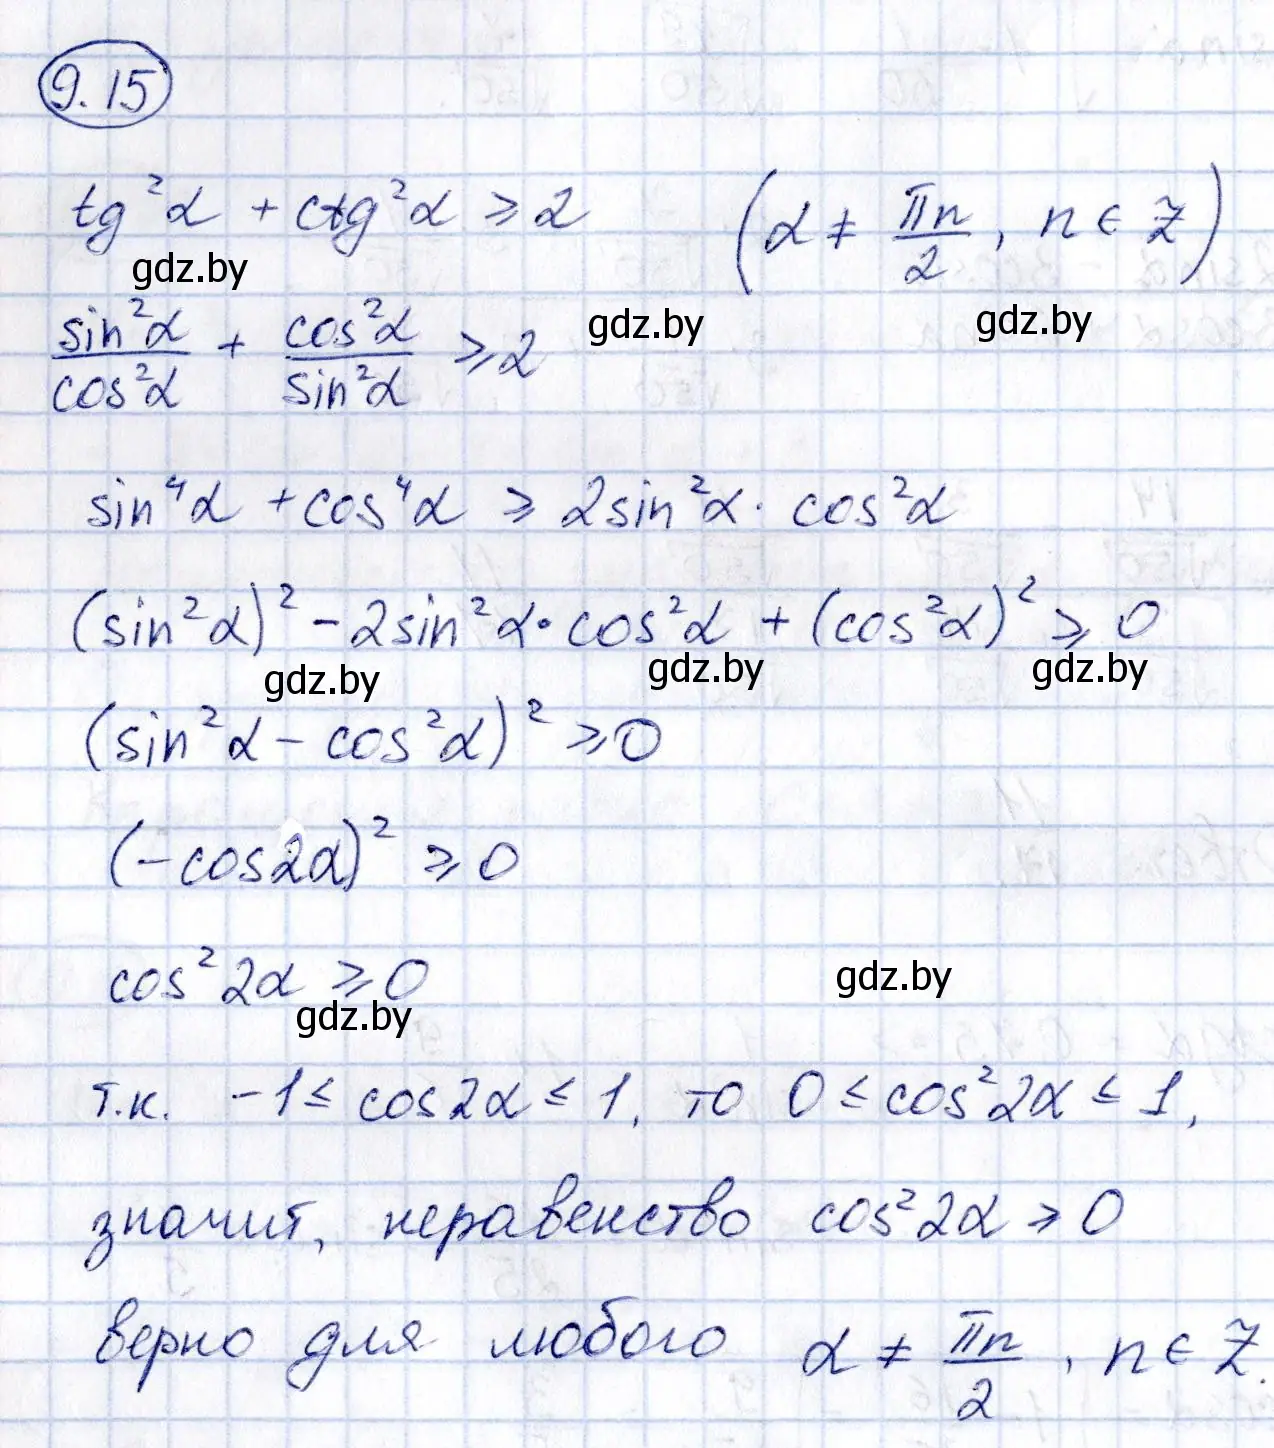 9.15
tg²α + ctg²α ⩾ 2 (α ≠ πn/2, n ∈ Z)
gdz.by
sin²α/cos²α + cos²α/sin²α ⩾ 2
gdz.by gdz.by
sin⁴α + cos⁴α ⩾ 2sin²α · cos²α
(sin²α)² − 2sin²α · cos²α + (cos²α)² ⩾ 0
gdz.by gdz.by gdz.by
(sin²α − cos²α)² ⩾ 0
(−cos2α)² ⩾ 0
cos²2α ⩾ 0 gdz.by
gdz.by
т.к. −1 ≤ cos2α ≤ 1, то 0 ≤ cos²2α ≤ 1,
значит, неравенство cos²2α ⩾ 0
верно для любого α ≠ πn/2, n ∈ Z.